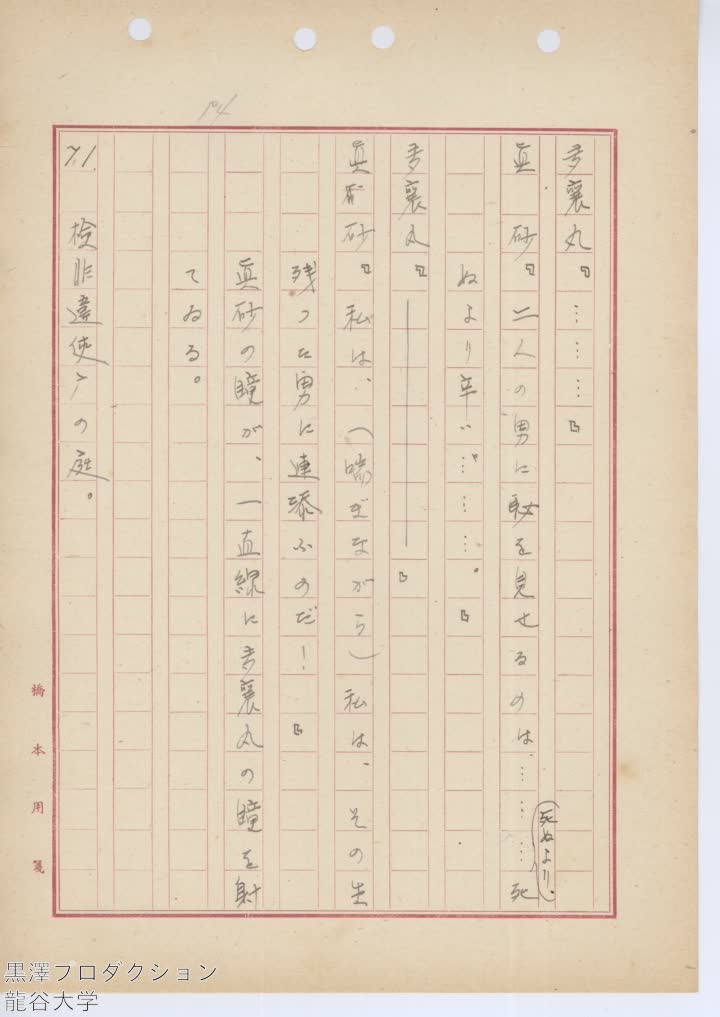 14
多襄丸『………』
真　砂『二人の男に恥を見せるのは………死
(死ぬより、
ぬより辛い………。』
多襄丸『――――――』
眞　砂『私は、(喘ぎながら)私は、その生
残つた男に連添ふのだ！』
眞砂の瞳が、一直線に多襄丸の瞳を射
てゐる。
71　検非違使庁の庭。
橋本用箋
黒澤プロダクション
龍谷大学